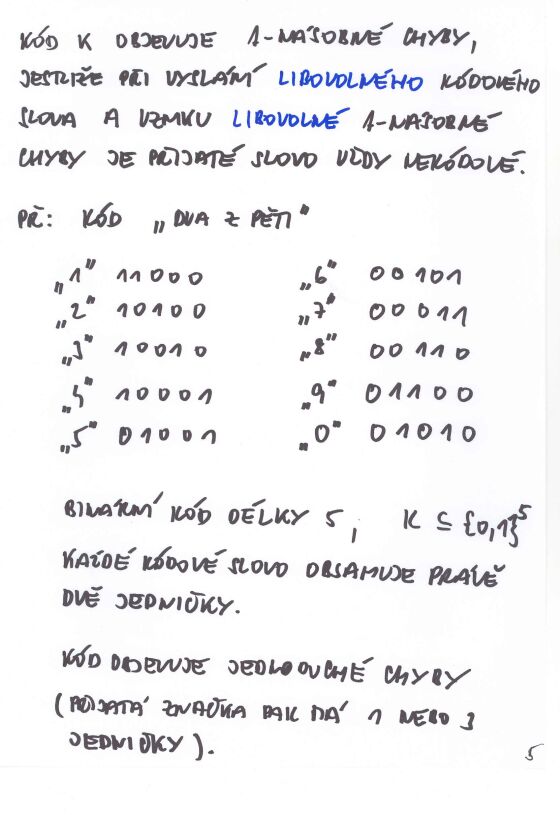 KÓD K OBJEVUJE 1-NÁSOBNÉ CHYBY,
JESTLIŽE PŘI VYSLÁNÍ LIBOVOLNÉHO KÓDOVÉHO
SLOVA A VZNIKU LIBOVOLNÉ 1-NÁSOBNÉ
CHYBY JE PŘIJATÉ SLOVO VŽDY NEKÓDOVÉ.
PŘ: KÓD „DVA Z PĚTI"
„1" 11000 „6" 00101
„2" 10100 „7" 00011
„3" 10010 „8" 00110
„4" 10001 „9" 01100
„5" 01001 „0" 01010
BINÁRNÍ KÓD DÉLKY 5, K ⊆ {0,1}⁵
KAŽDÉ KÓDOVÉ SLOVO OBSAHUJE PRÁVĚ
DVĚ JEDNIČKY.
KÓD OBJEVUJE JEDNODUCHÉ CHYBY
(PŘIJATÁ ZNAČKA PAK MÁ 1 NEBO 3
JEDNIČKY).
5